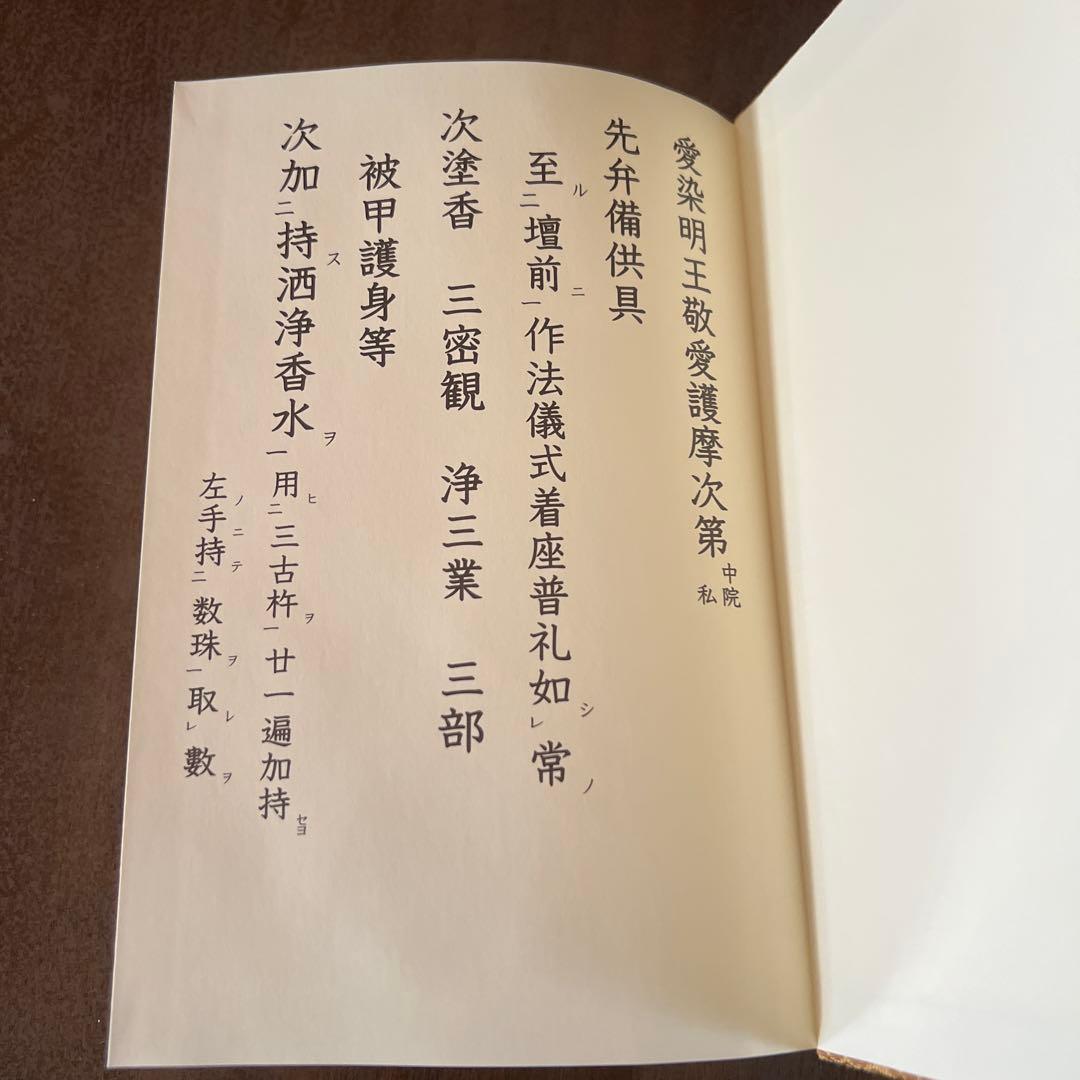 愛染明王敬愛護摩次第 中院私
先弁備供具
至ル二壇前ニ一作法儀式着座普礼如シレ常ノ
次塗香 三密観 浄三業 三部
被甲護身等
次加二持ス洒浄香水ヲ一用ヒ二三古杵ヲ一廿一遍加持セヨ
左ノ手ニ持テ二数珠ヲ一取レレ數ヲ